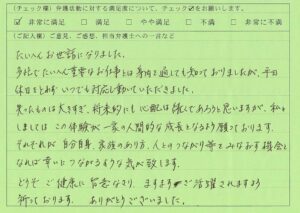 (チェック欄) 弁護活動に対する満足度について、チェック☑をお願いします。
☑ 非常に満足 □ 満足 □ やや満足 □ 不満 □ 非常に不満
(ご記入欄) ご意見、ご感想、担当弁護士への一言など
たいへんお世話になりました。
たいへん重要なお仕事とは身内を通しても知っておりましたが、平日
休日をとわず いつでも対応し動いていただきました。
失ったものは大きすぎ、将来的にも心配は絶えであろうと思いますが、私と
しましては この体験が一家の人間的な成長となるよう願っております。
それぞれが 自分自身、家族のあり方、人とのつながり等をみなおす機会と
なれば 幸いに つながるような気が致します。
どうぞ ご健康に 留意なさり、ますます ご活躍されますよう
祈っております。 ありがとうございました。